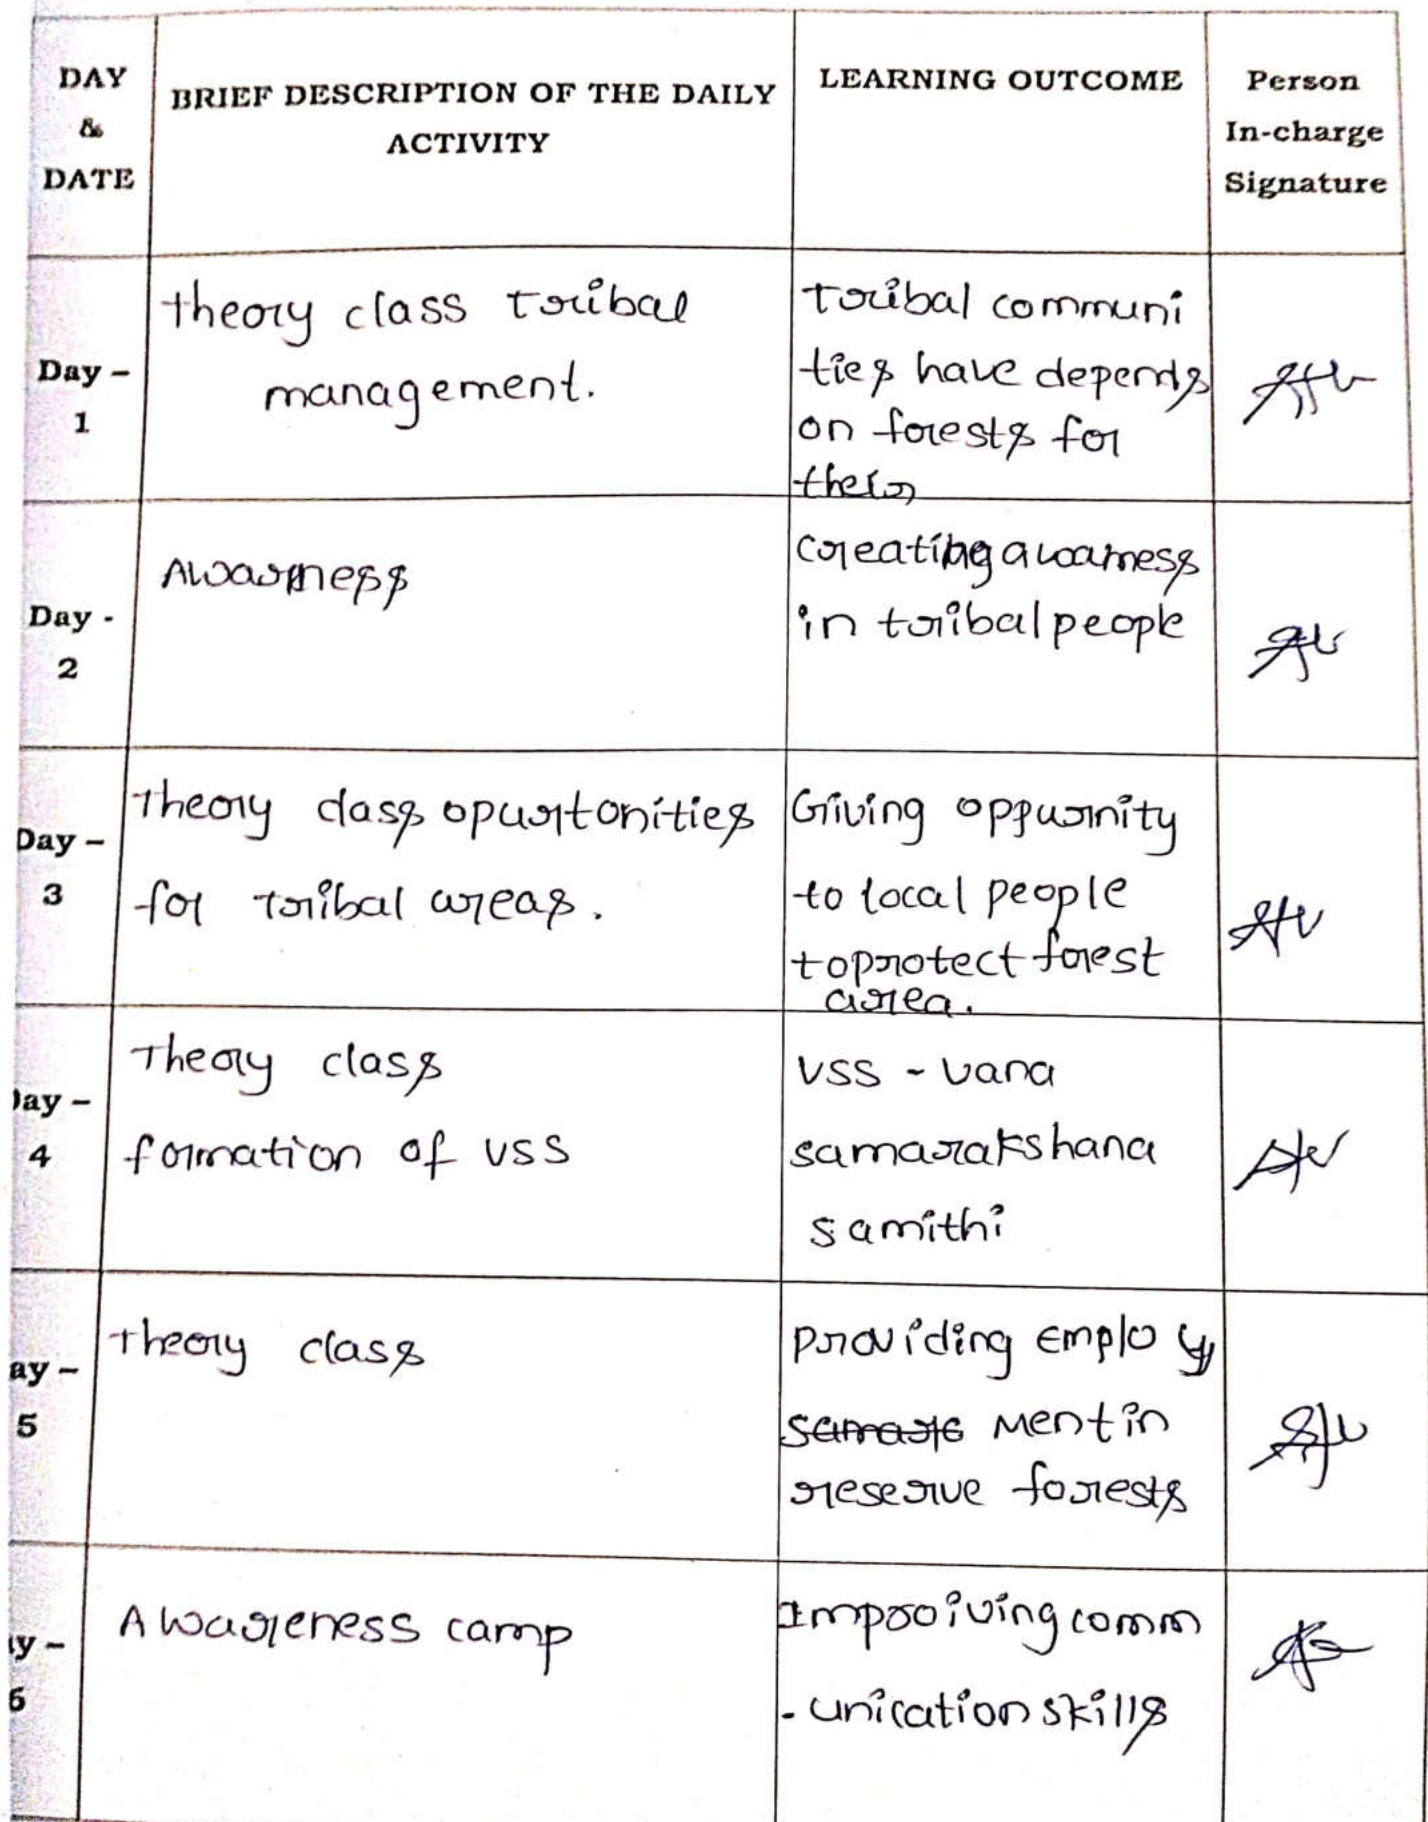 DAY
&
DATE
BRIEF DESCRIPTION OF THE DAILY
ACTIVITY
LEARNING OUTCOME
Person
In-charge
Signature
Day –
1
theory class tribal
management.
tribal communi
ties have depends
on forests for
their
Day -
2
Awarness
creating awarness
in tribal people
Day –
3
Theory class opurtonities
for tribal areas.
Giving oppurnity
to local people
toprotect forest
area.
Day –
4
Theory class
formation of VSS
VSS - vana
samarakshana
samithi
ay –
5
Theory class
providing Employ
ment in
reserve forests
y –
6
Awareness camp
Improiving comm
- unication skills